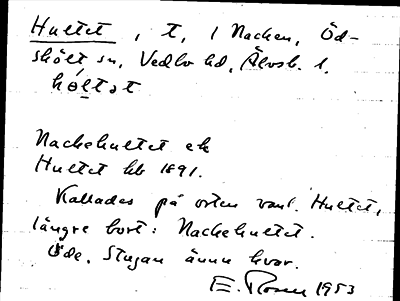 Hultet, t, i Nacken, Öd-
skölt sn, Vedbo hd, Älvsb. l.
hól̥tət
Nackehultet ek
Hultet hb 1891.
Kallades på orten vanl. Hultet,
längre bort: Nackehultet.
Öde. Stugan ännu kvar.
E. Rosen 1953